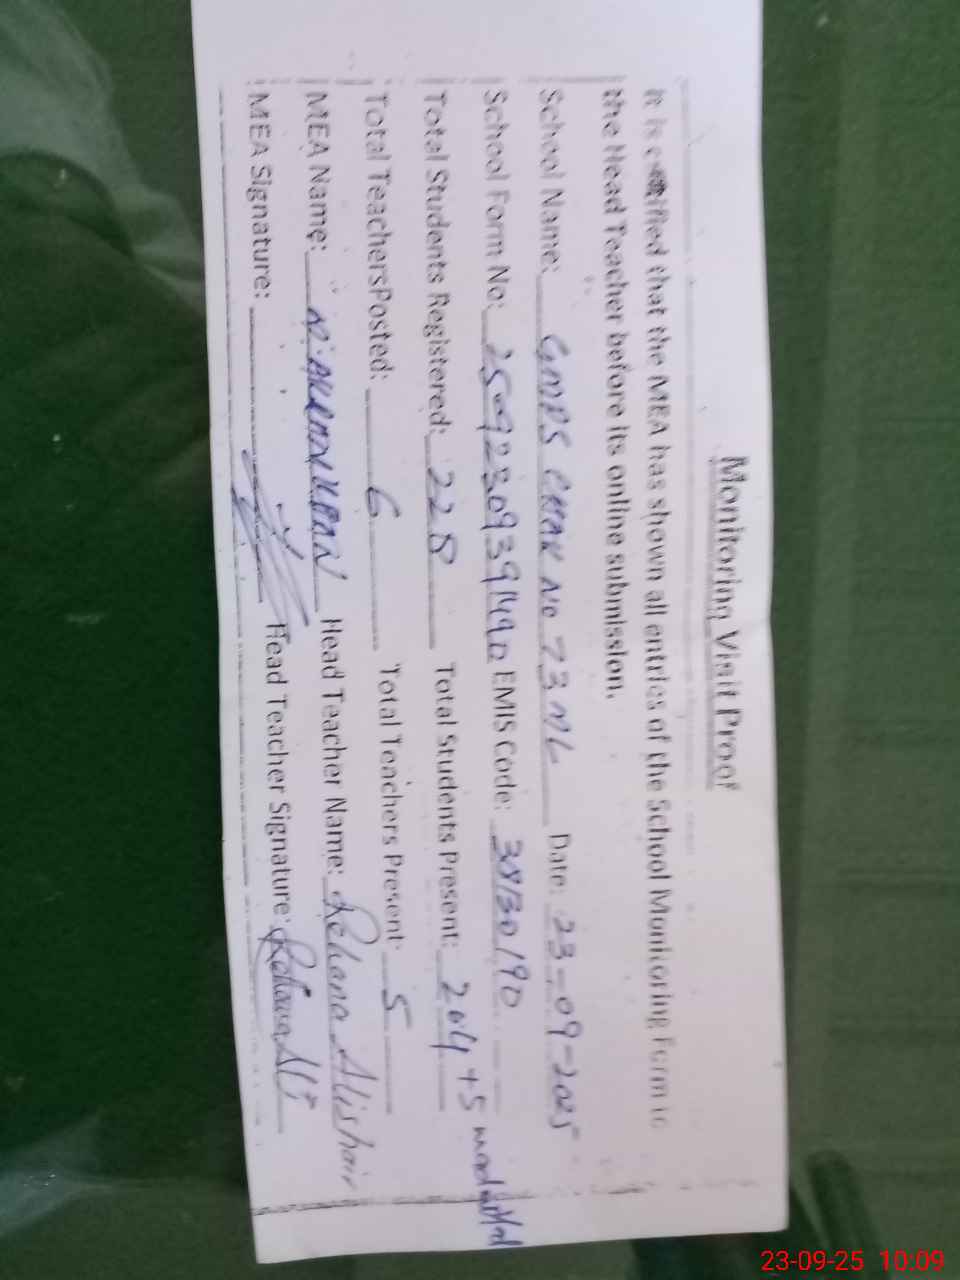 Monitoring Visit Proof
It is certified that the MEA has shown all entries of the School Monitoring Form to
the Head Teacher before its online submission.
School Name: GMPS CHAK NO 73 ML Date: 23-09-2025
School Form No: EMIS Code: 38130190
Total Students Registered: 228 Total Students Present: 204+5
Total TeachersPosted: 6 Total Teachers Present: 5
MEA Name: Head Teacher Name: Rehana Alishair
MEA Signature: Head Teacher Signature: Rehana Ali
23-09-25 10:09